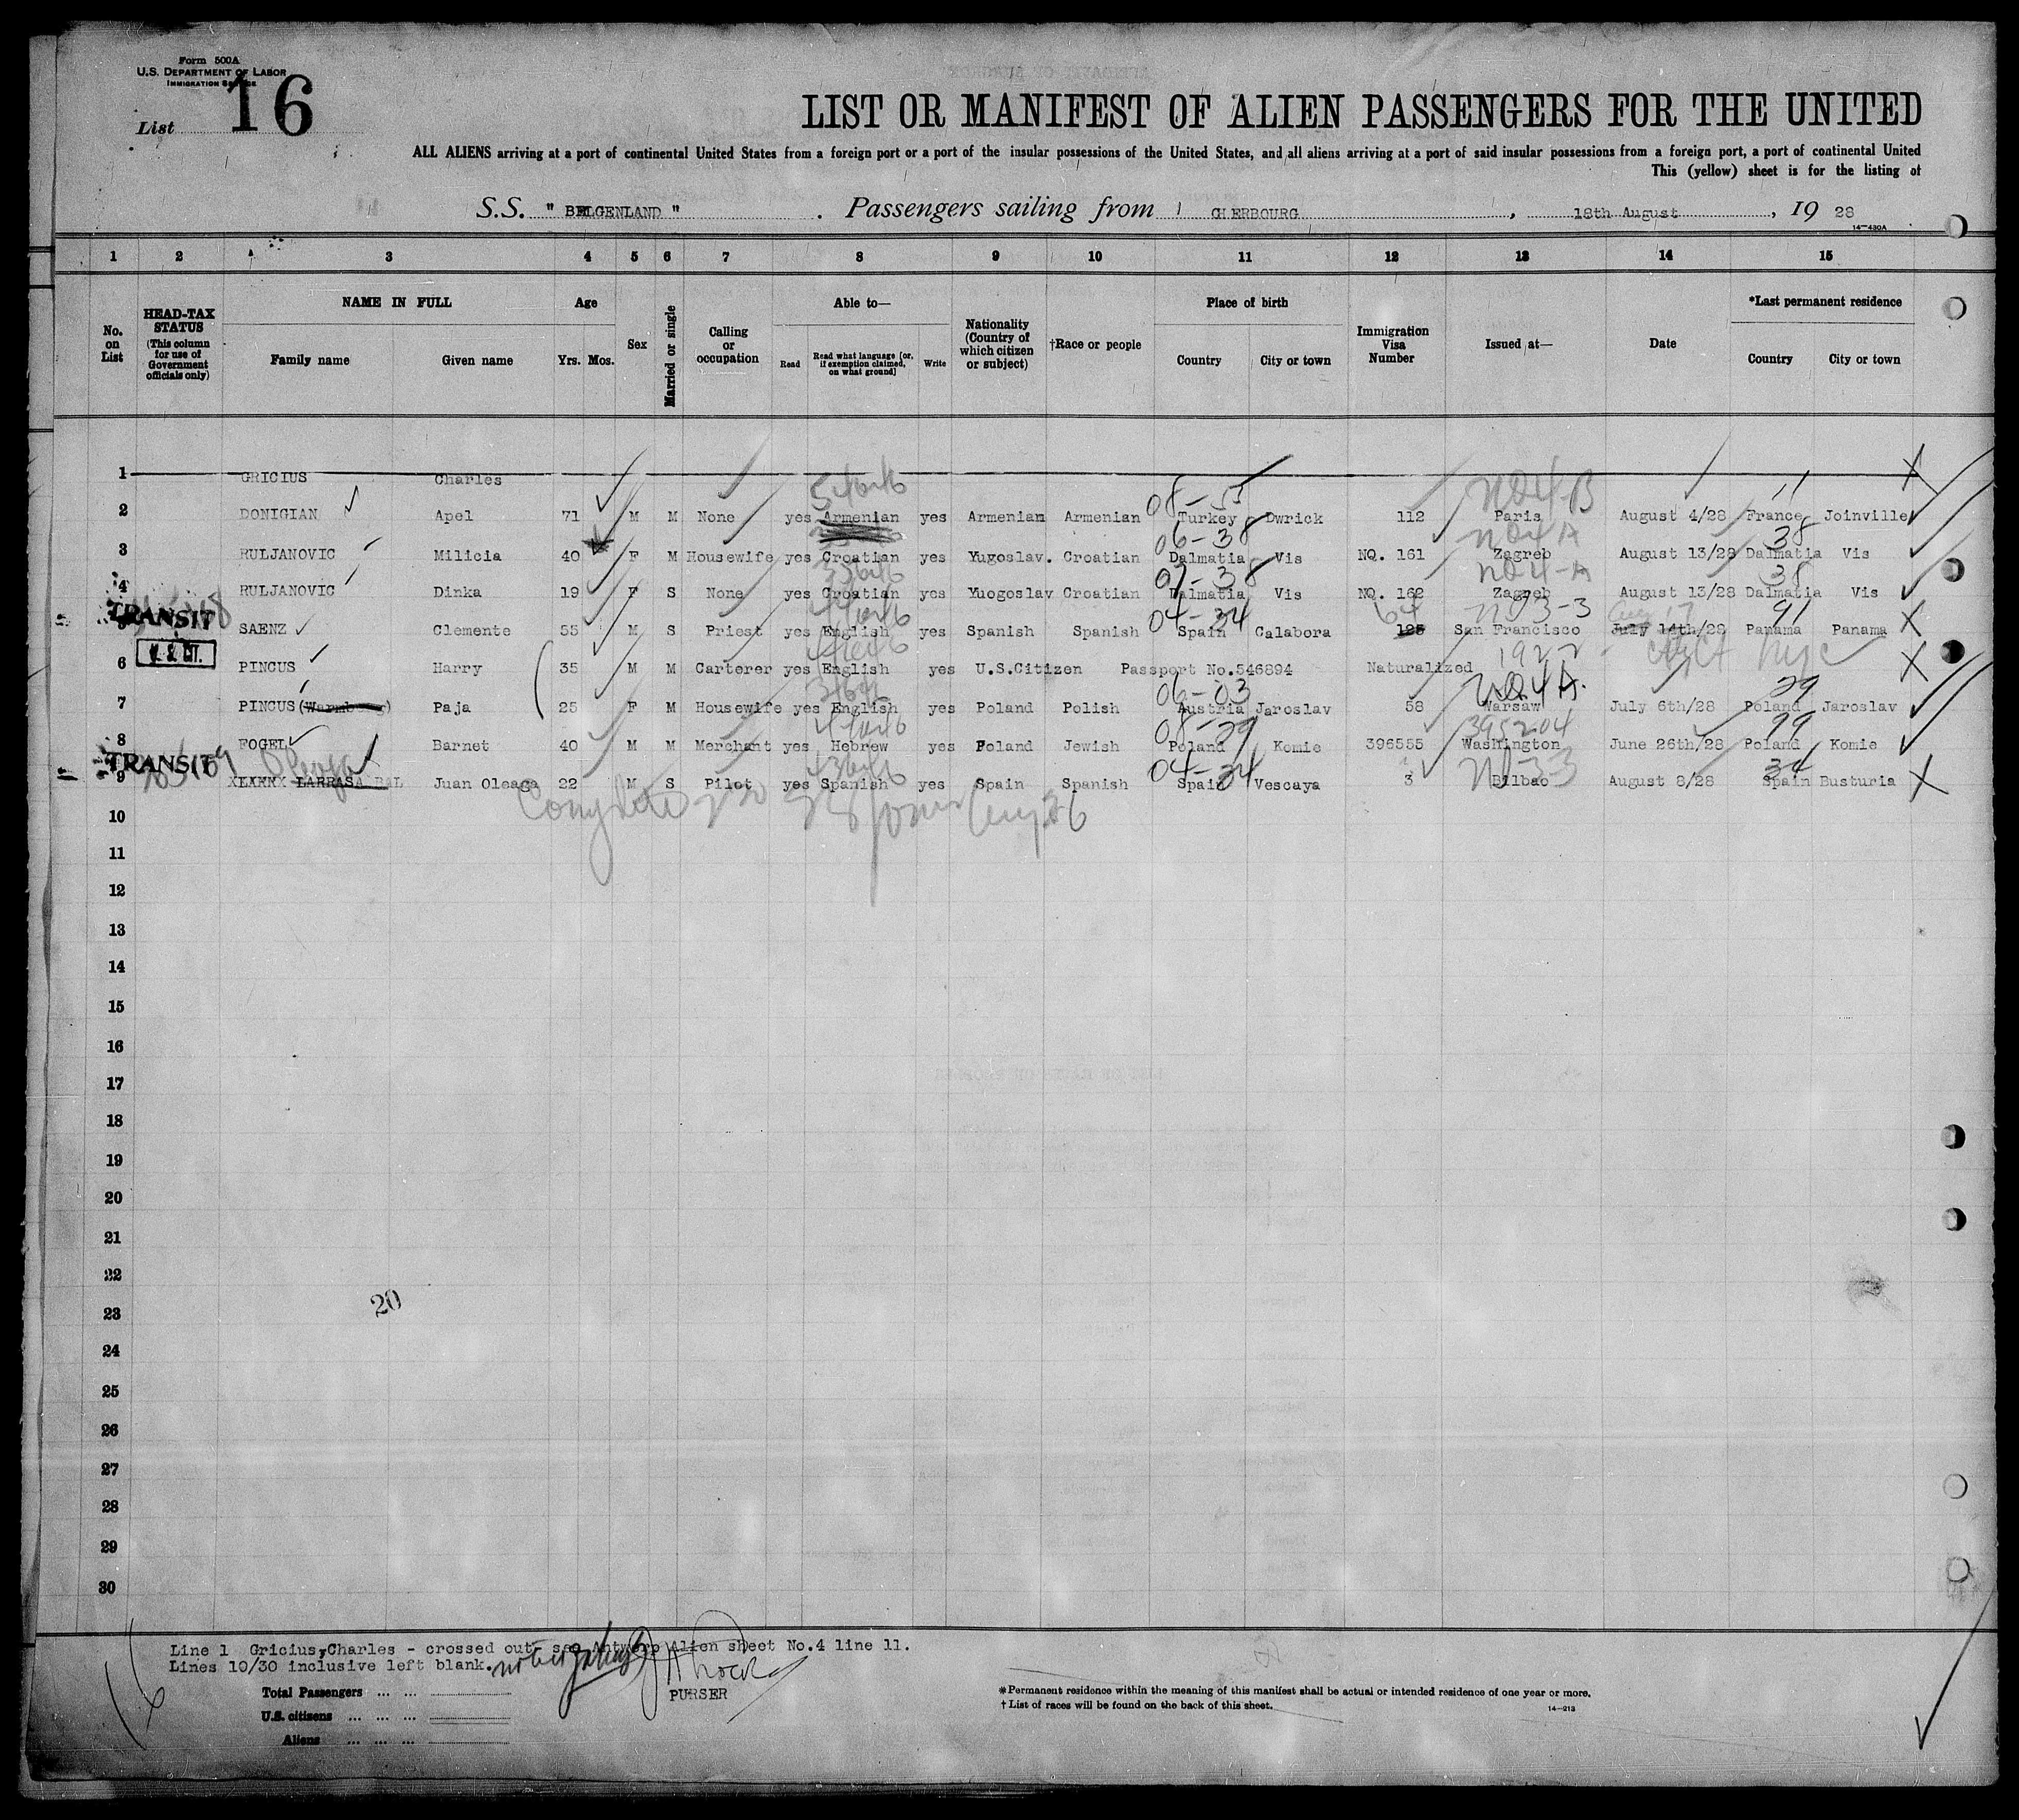 Form 500A
U.S. DEPARTMENT OF LABOR
IMMIGRATION SERVICE
List 16
LIST OR MANIFEST OF ALIEN PASSENGERS FOR THE UNITED
ALL ALIENS arriving at a port of continental United States from a foreign port or a port of the insular possessions of the United States, and all aliens arriving at a port of said insular possessions from a foreign port, a port of continental United
This (yellow) sheet is for the listing of
S.S. " BELGENLAND ". Passengers sailing from CHERBOURG, 18th August, 19 28
14—430A
1 2 3 4 5 6 7 8 9 10 11 12 13 14 15
No. on List
HEAD-TAX STATUS (This column for use of Government officials only)
NAME IN FULL
Family name Given name
Age
Yrs. Mos.
Sex
Married or single
Calling or occupation
Able to—
Read Read what language [or, if exemption claimed, on what ground] Write
Nationality (Country of which citizen or subject)
†Race or people
Place of birth
Country City or town
Immigration Visa Number
Issued at—
Date
*Last permanent residence
Country City or town
1 GRICIUS Charles
08-55 NQ4-B 11
2 DONIGIAN Apel 71 M M None yes Armenian yes Armenian Armenian Turkey Dwrick 112 Paris August 4/28 France Joinville
06-38 NQ4A 38
3 RULJANOVIC Milicia 40 F M Housewife yes Croatian yes Yugoslav. Croatian Dalmatia Vis NQ. 161 Zagreb August 13/28 Dalmatia Vis
07-38 NQ4-A 38
4 RULJANOVIC Dinka 19 F S None yes Croatian yes Yuogoslav Croatian Dalmatia Vis NQ. 162 Zagreb August 13/28 Dalmatia Vis
TRANSIT 04-34 64 N3-3 Aug 17 91
5 SAENZ Clemente 55 M S Priest yes English yes Spanish Spanish Spain Calabora 125 San Francisco July 14th/28 Panama Panama
U.S. CIT. 1922 NYC
6 PINCUS Harry 35 M M Carterer yes English yes U.S.Citizen Passport No.546894 Naturalized
06-03 NQ4A. 29
7 PINCUS (Warmberg) Paja 25 F M Housewife yes English yes Poland Polish Austria Jaroslav 58 Warsaw July 6th/28 Poland Jaroslav
08-29 395204 99
8 FOGEL Barnet 40 M M Merchant yes Hebrew yes Poland Jewish Poland Komie 396555 Washington June 26th/28 Poland Komie
TRANSIT Oleaga 04-34 N3-3 34
9 LARRASABAL Juan Oleaga 22 M S Pilot yes Spanish yes Spain Spanish Spain Vescaya 3 Bilbao August 8/28 Spain Busturia
10
11
12
13
14
15
16
17
18
19
20
21
22
23
20
24
25
26
27
28
29
30
Line 1 Gricius,Charles - crossed out see Antwerp Alien sheet No.4 line 11.
Lines 10/30 inclusive left blank.
PURSER
Total Passengers ... ...
U.S. citizens ... ... ...
Aliens ... ... ...
*Permanent residence within the meaning of this manifest shall be actual or intended residence of one year or more.
† List of races will be found on the back of this sheet.
14—213